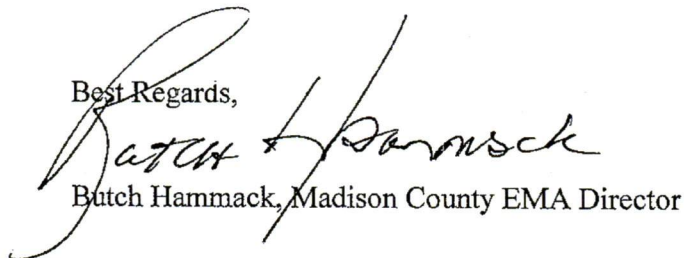 Best Regards,
Butch Hammack
Butch Hammack, Madison County EMA Director